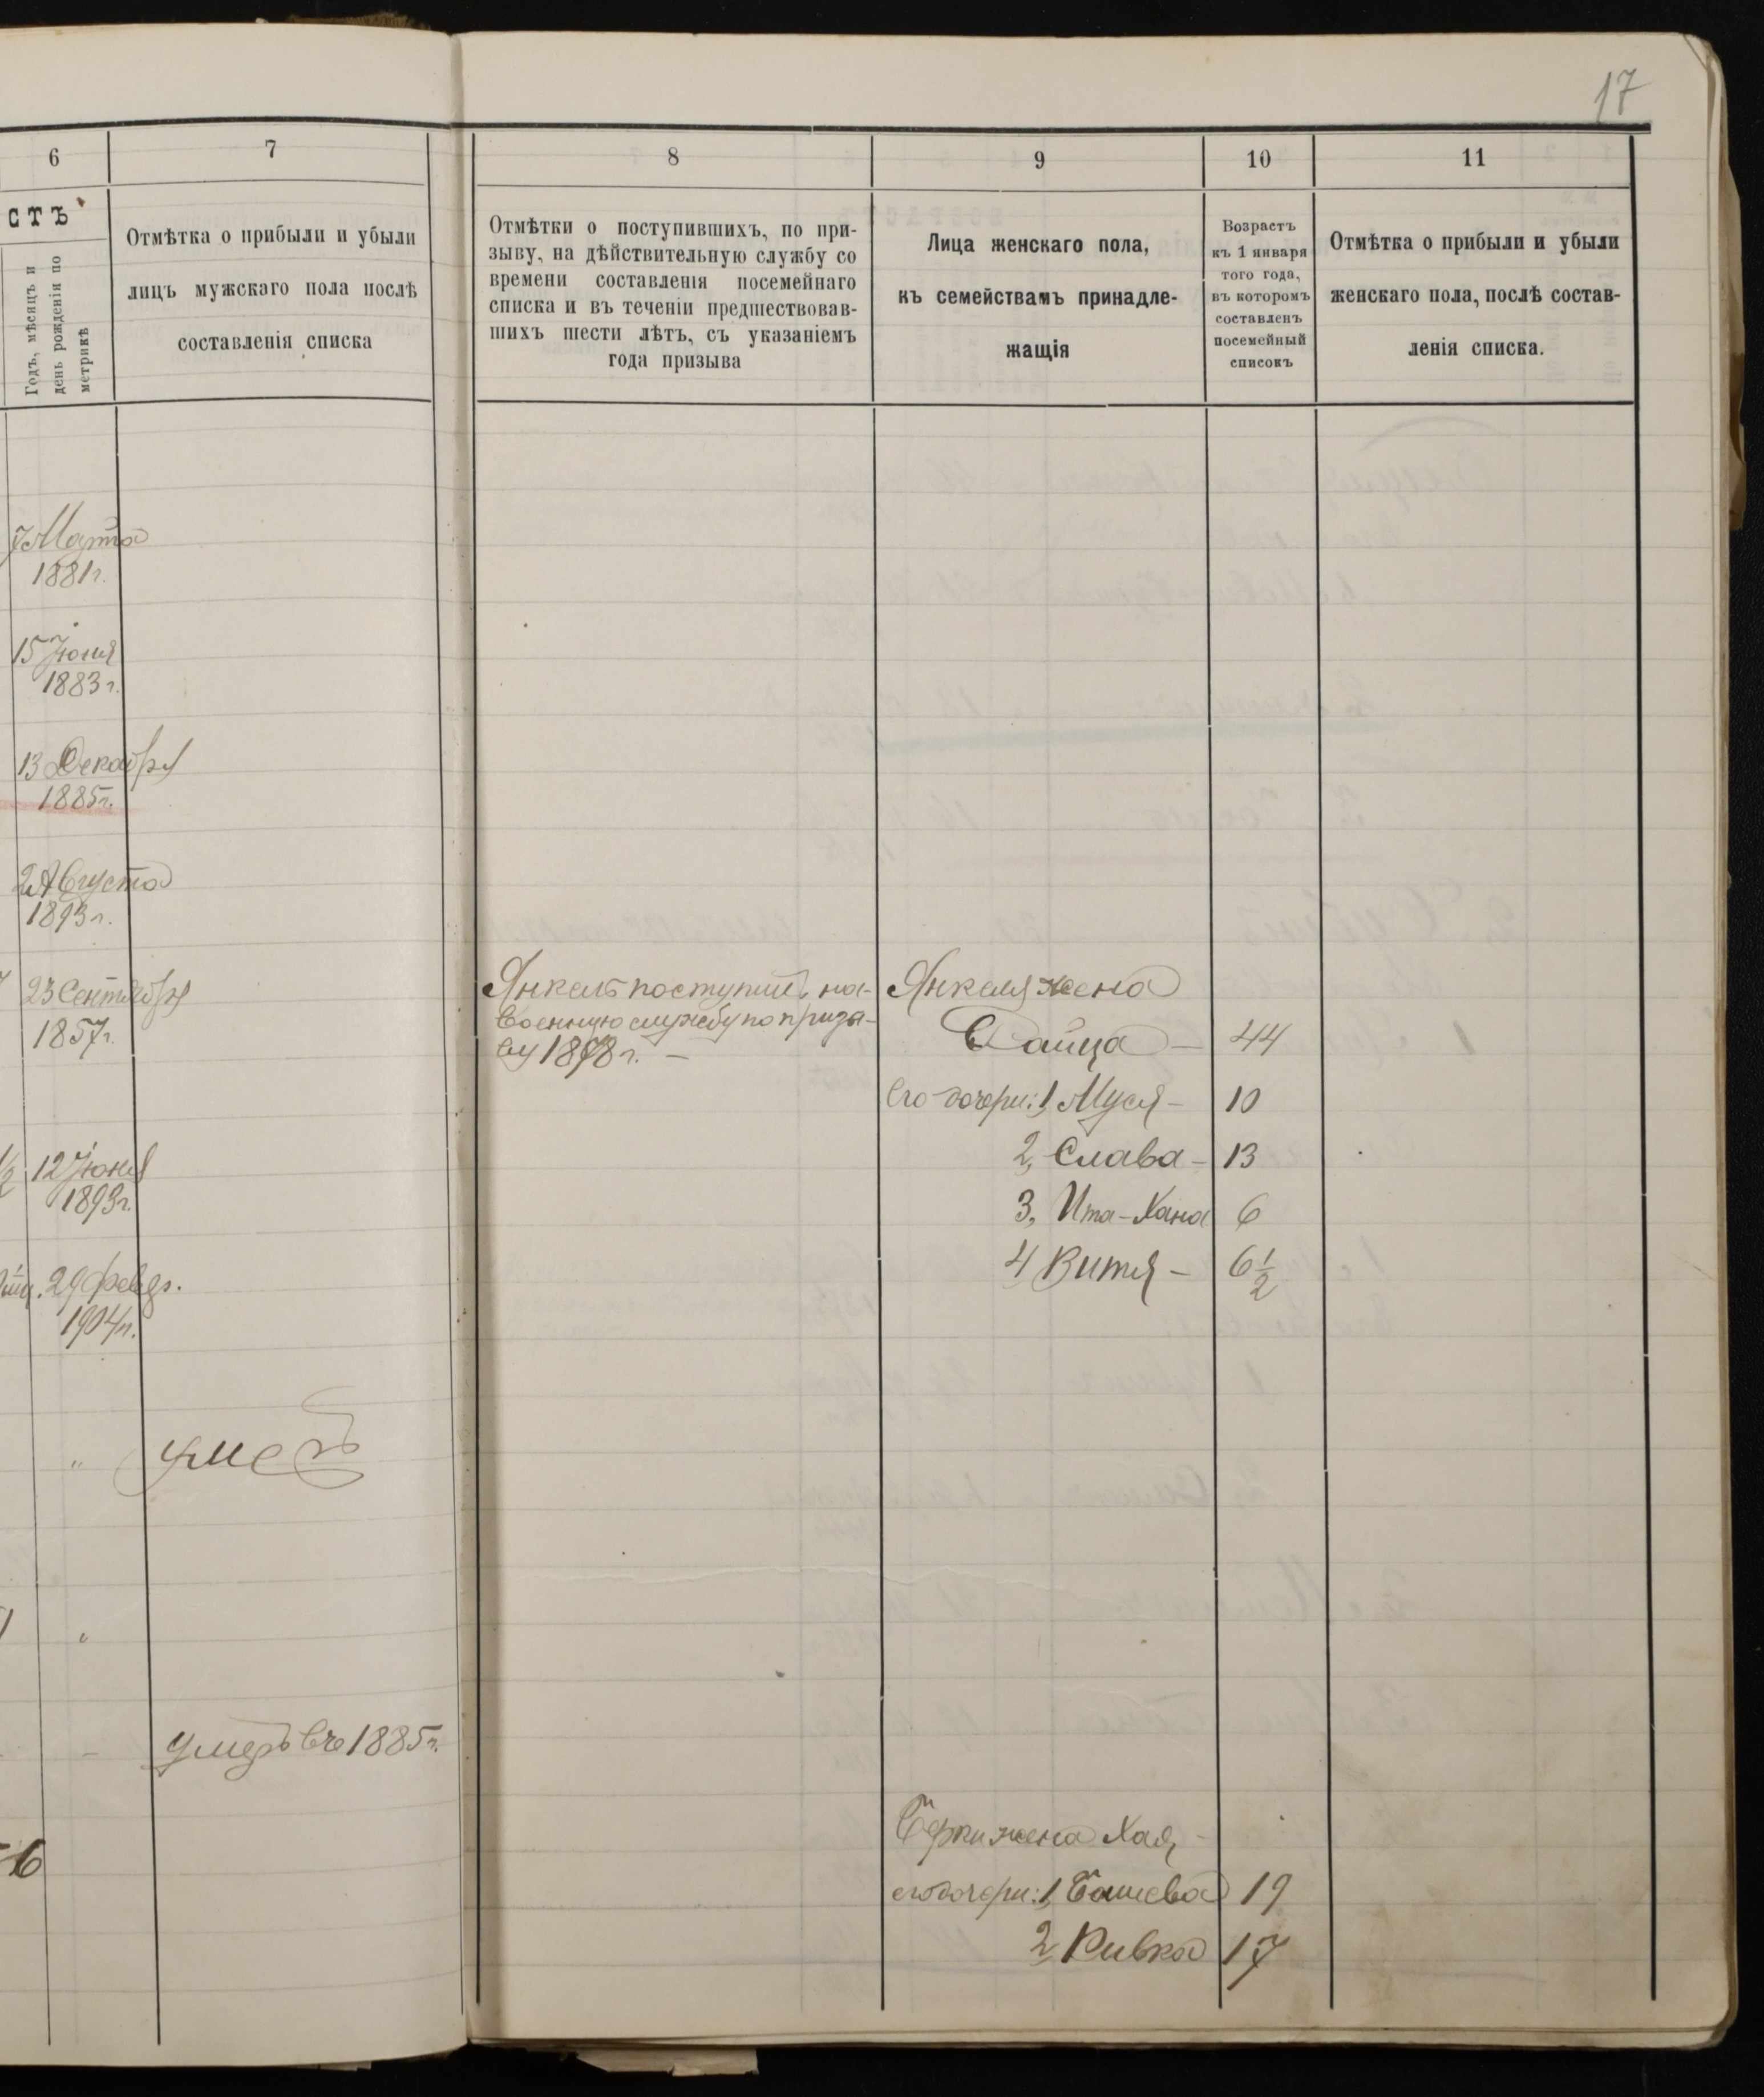 17
6
7
8
9
10
11
СТЪ
Годъ, мѣсяцъ и
день рожденія по
метрикѣ
Отмѣтка о прибыли и убыли
лицъ мужскаго пола послѣ
составленія списка
Отмѣтки о поступившихъ, по при-
зыву, на дѣйствительную службу со
времени составленія посемейнаго
списка и въ теченіи предшествовав-
шихъ шести лѣтъ, съ указаніемъ
года призыва
Лица женскаго пола,
къ семействамъ принадле-
жащія
Возрастъ
къ 1 января
того года,
въ которомъ
составленъ
посемейный
списокъ
Отмѣтка о прибыли и убыли
женскаго пола, послѣ состав-
ленія списка.
7 Марта
1881 г.
15 Іюня
1883 г.
13 Декабря
1885 г.
2 Августа
1893 г.
23 Сентября
1857 г.
Янкель поступил, на
военную службу по призы-
ву 1878 г. —
Янкеля жена
44
Его дочери: 1, Муся — 10
2, Слава — 13
3, Ита-Хана 6
4 Витя — 6 1/2
12 Іюня
1893 г.
29 февр.
1904 г.
умеръ
умеръ въ 1885 г.
6
Берки жена Хая, -
его дочери: 1, Башева 19
2, Ривка 17